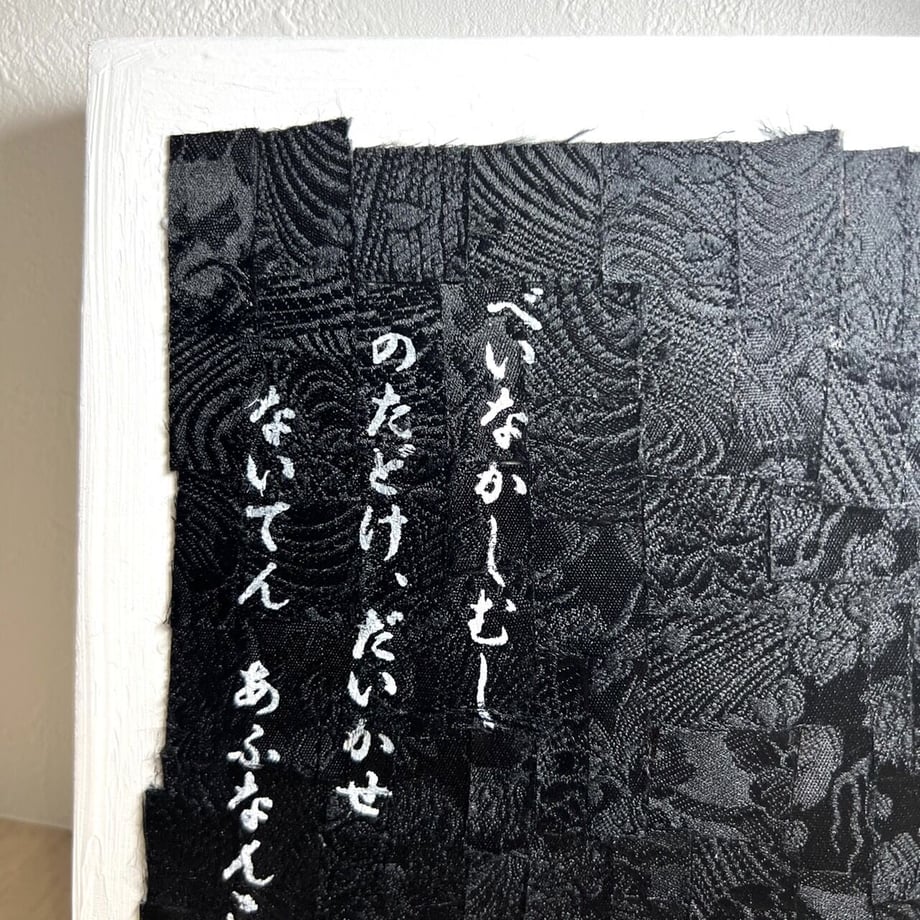 べいなかしむし
のたどけ、だいかせ
ないてん あふなせ